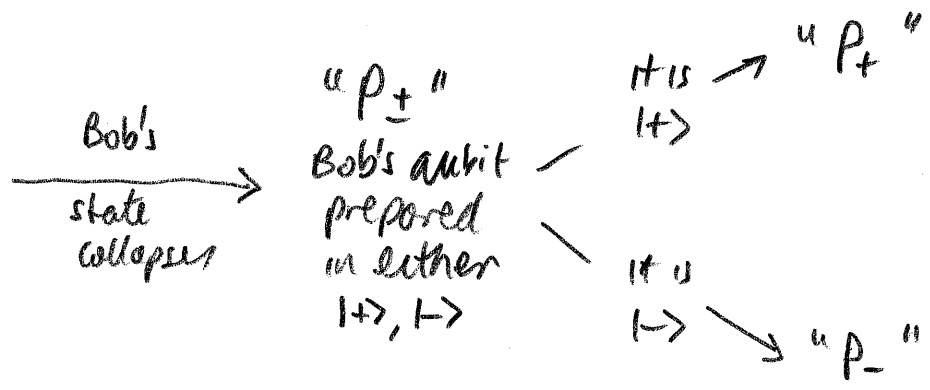 Bob's
state
collapses
"P±"
Bob's qubit
prepared
in either
|+>, |->
it is
|+>
"P+"
it is
|->
"P-"